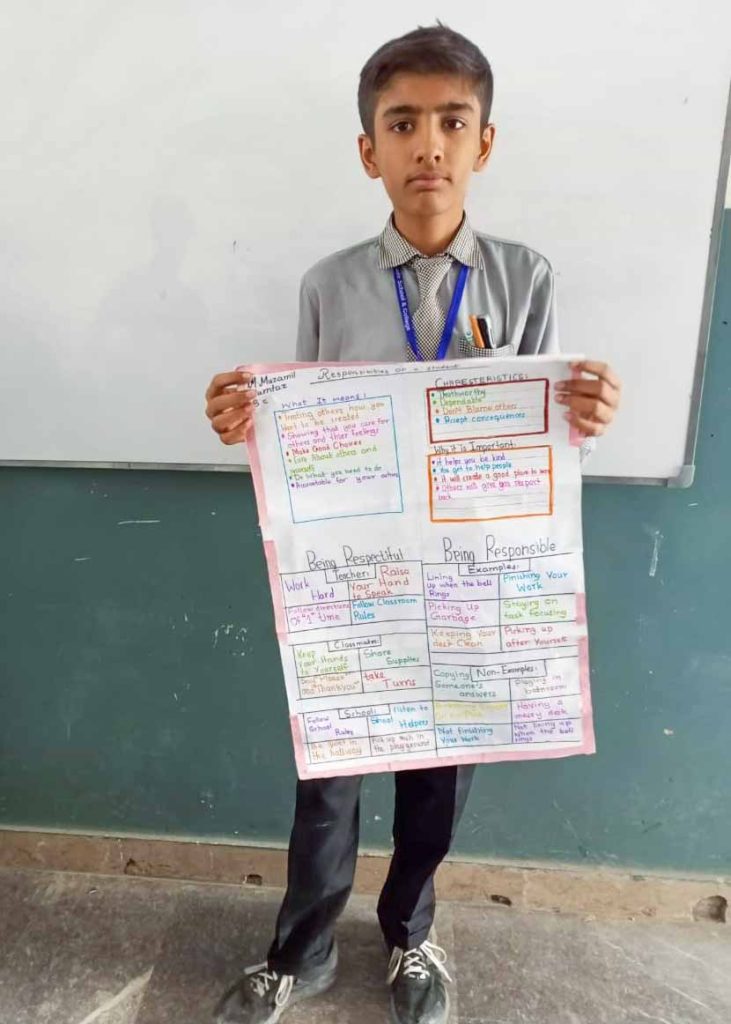 School & College
M. Muzamil
Mumtaz
Responsibilities of a student
What It means:
Treating others how you
want to be treated
Showing that you care for
others and thier feelings
Make Good Choices
Care About others and
yourself
Do What you need to do
Accountable for your actions
CHARESTERISTICS:
Trustworthy
Dependable
Don't Blame others
Accept consequences
Why it is Important:
It helps you be kind
You get to help people
It will create a good place to
Others will give you respect
back
Being Respectful
Teacher:
Work
Hard
Raise
Your Hand
to Speak
Follow directions
1st time
Follow Classroom
Rules
Classmate:
Keep
your Hands
to Yourself
Share
Supplies
Say "Please"
and "Thankyou"
take
Turns
School:
Follow
School
Rules
listen to
Helpers
Be Quiet in
the hallway
Pick up trash in
the playground
Being Responsible
Examples:
Lining
up when the bell
Rings
Finishing Your
Work
Picking Up
Garbage
Staying on
task Focusing
Keeping Your
desk Clean
Picking up
after Yourself
Non-Examples:
Copying
Someone's
answers
Playing in
Having a
messy desk
Not finishing
Your Work
Not lining up
when the bell
rings